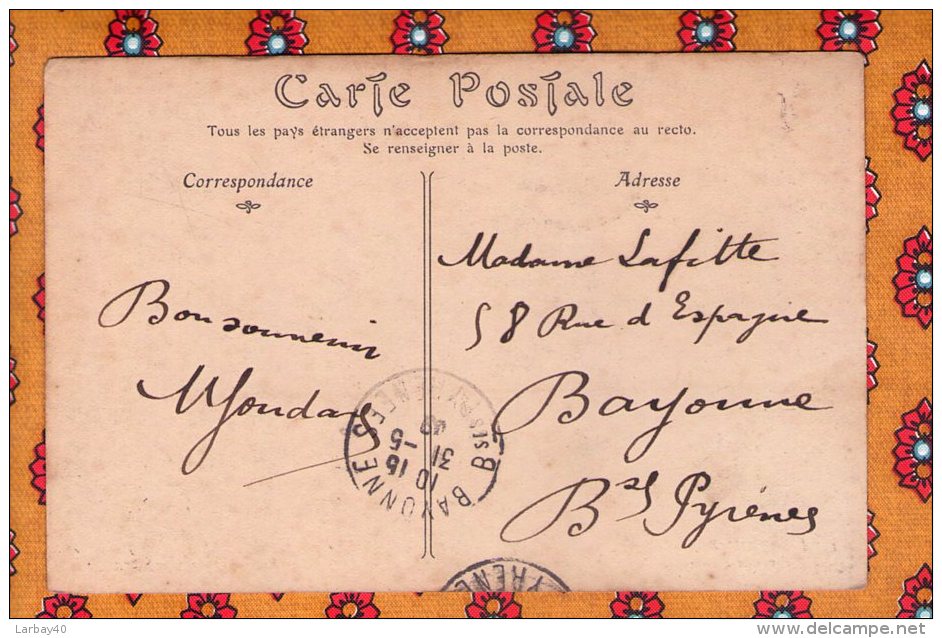 Carte Postale
Tous les pays étrangers n'acceptent pas la correspondance au recto.
Se renseigner à la poste.
Correspondance
Adresse
Bon souvenir
Madame Lafitte
58 Rue d'Espagne
Bayonne
Bses Pyrénées
BAYONNE
BSES PYRENEES
10 15
31 -5
PYRENE
Larbay40
www.delcampe.net